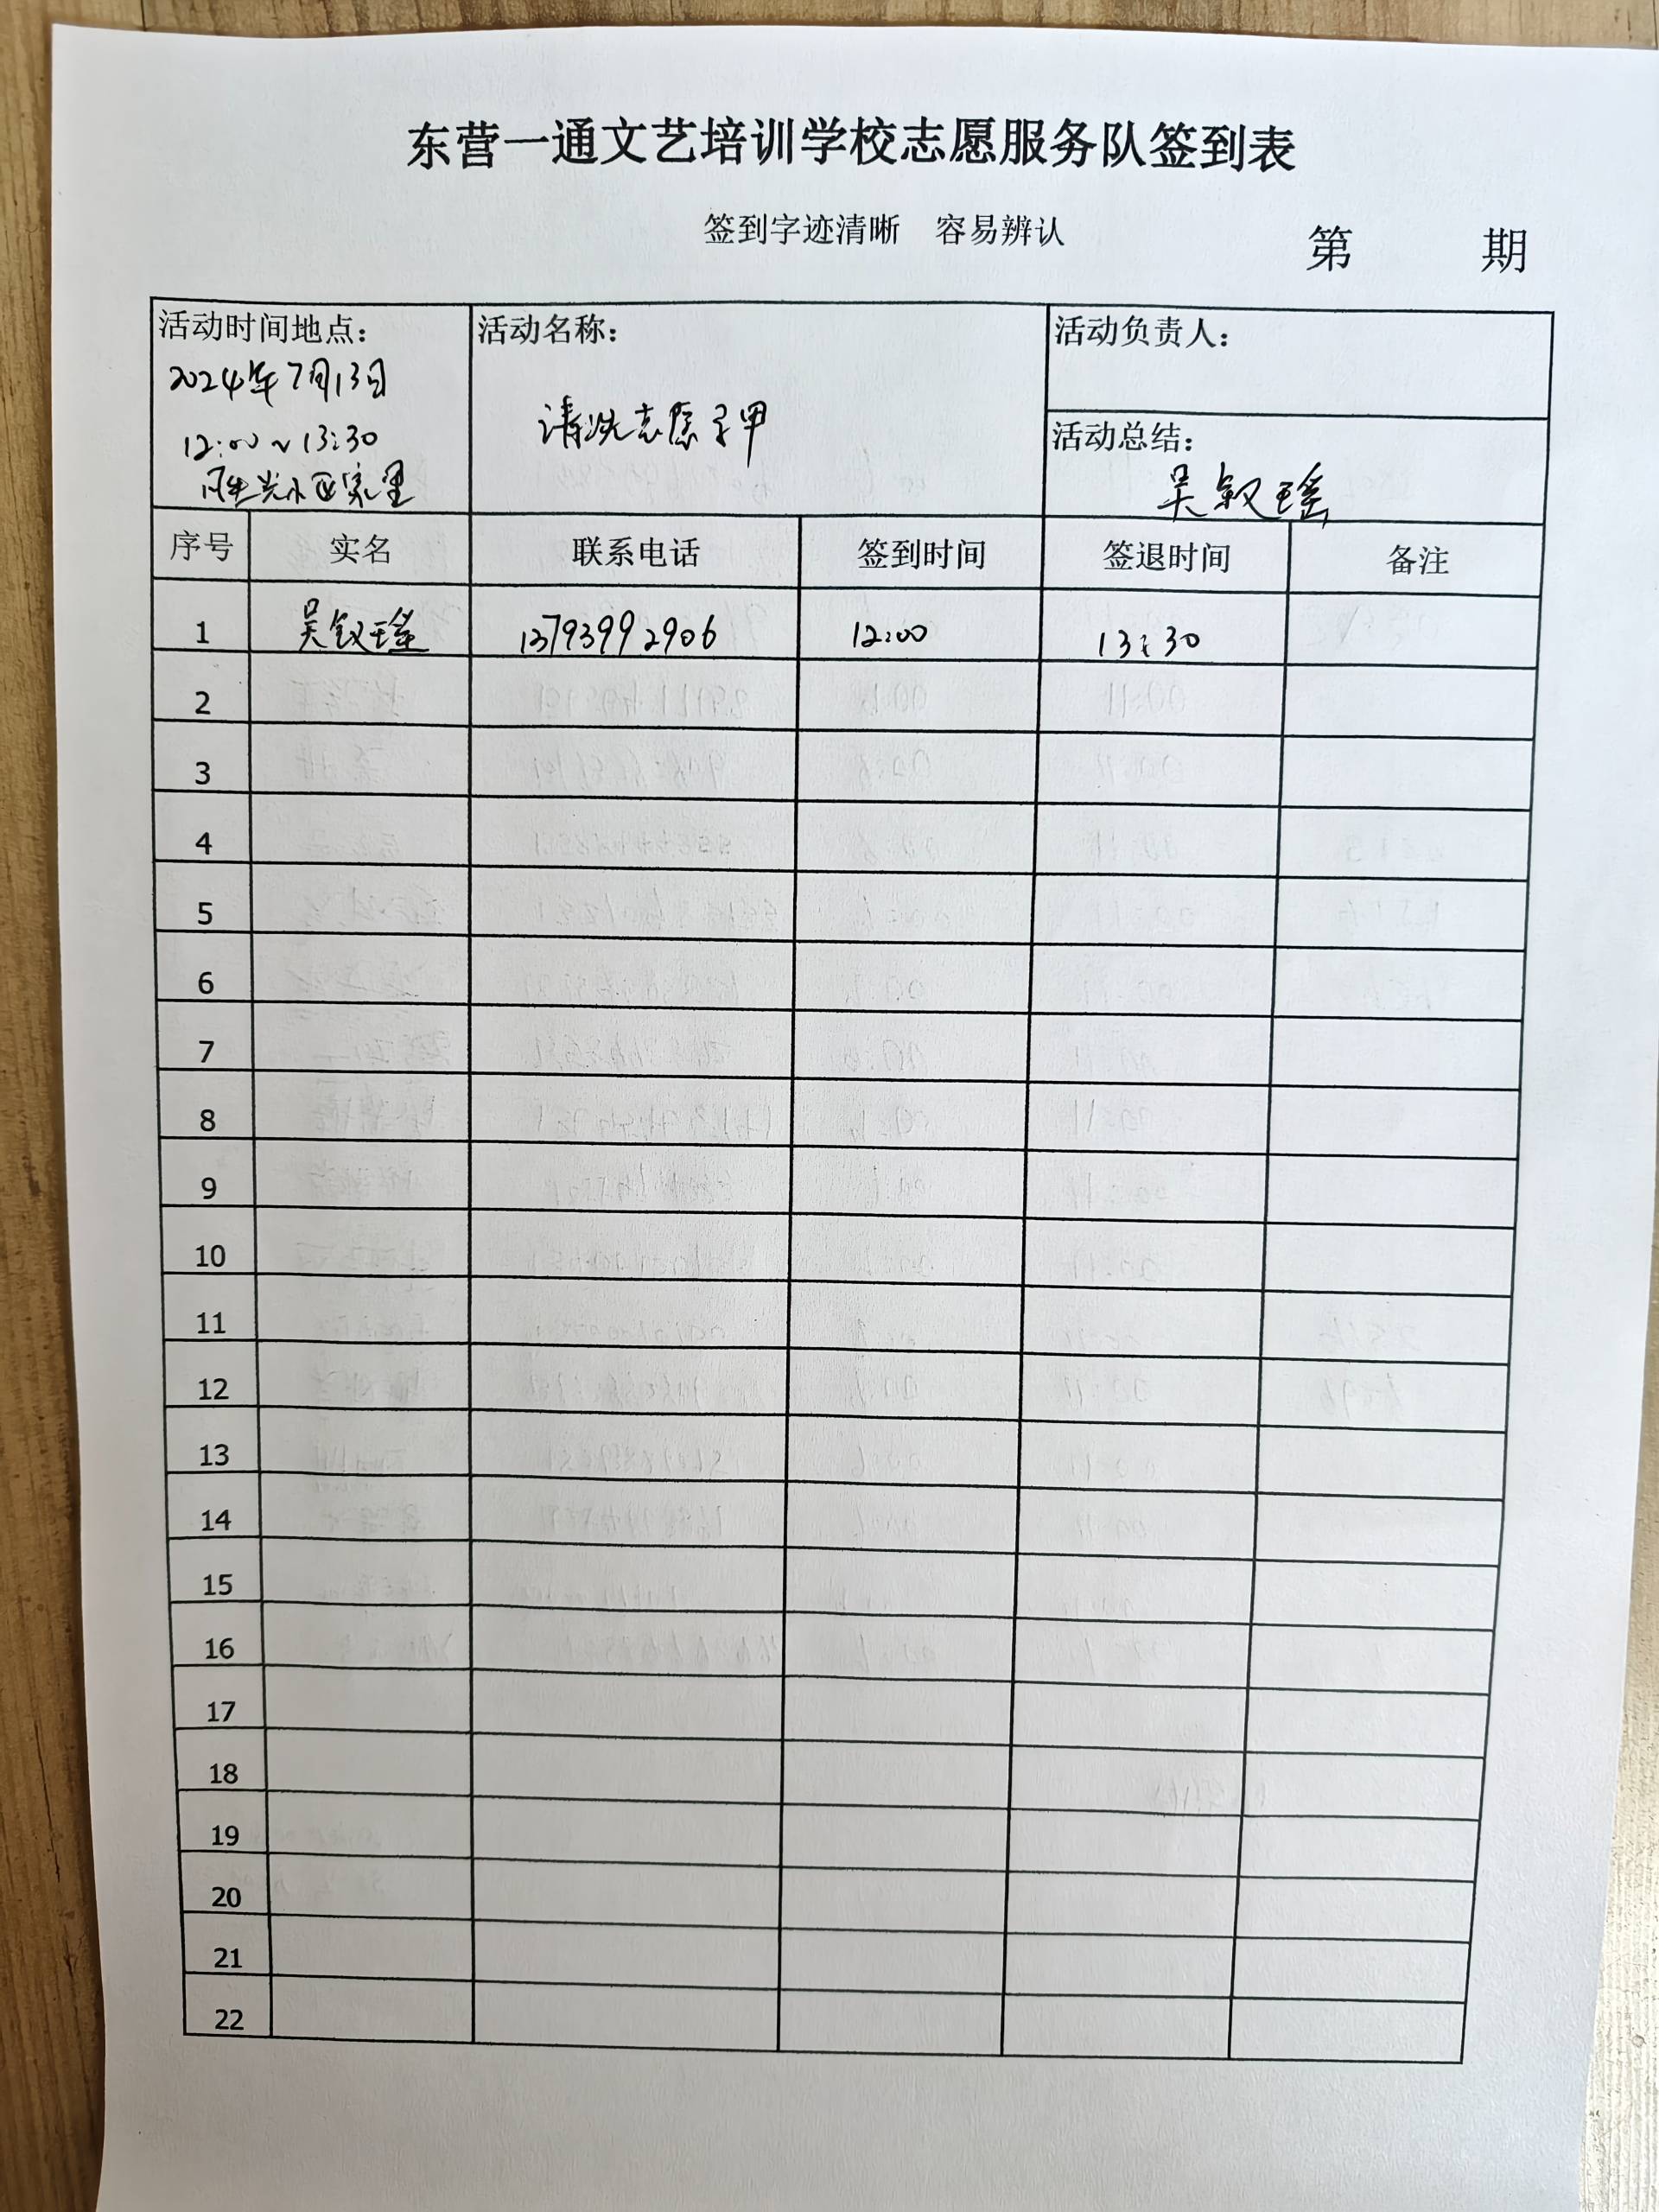 东营一通文艺培训学校志愿服务队签到表
签到字迹清晰 容易辨认
第 期
活动时间地点：
2024年7月13日
12:00～13:30
阳光小区家里
活动名称：
清洗志愿马甲
活动负责人：
活动总结：
吴钗瑶
序号 实名 联系电话 签到时间 签退时间 备注
1 吴钗瑶 13793992906 12:00 13:30
2
3
4
5
6
7
8
9
10
11
12
13
14
15
16
17
18
19
20
21
22